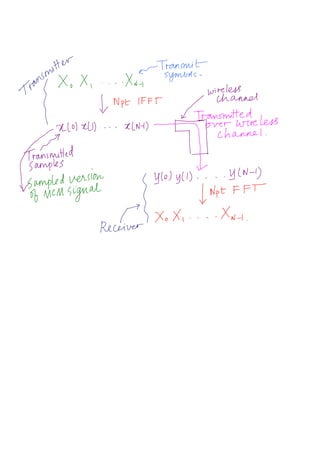 Transmitter
X₀ X₁ .... X_N-1
Transmit
symbols.
Npt IFFT
wireless
channel
x(0) x(1) ... x(N-1)
Transmitted
over wireless
channel.
Transmitted
samples
Sampled version
of MCM signal
y(0) y(1) . . . . y(N-1)
Npt FFT
X₀ X₁ . . . . X_N-1.
Receiver